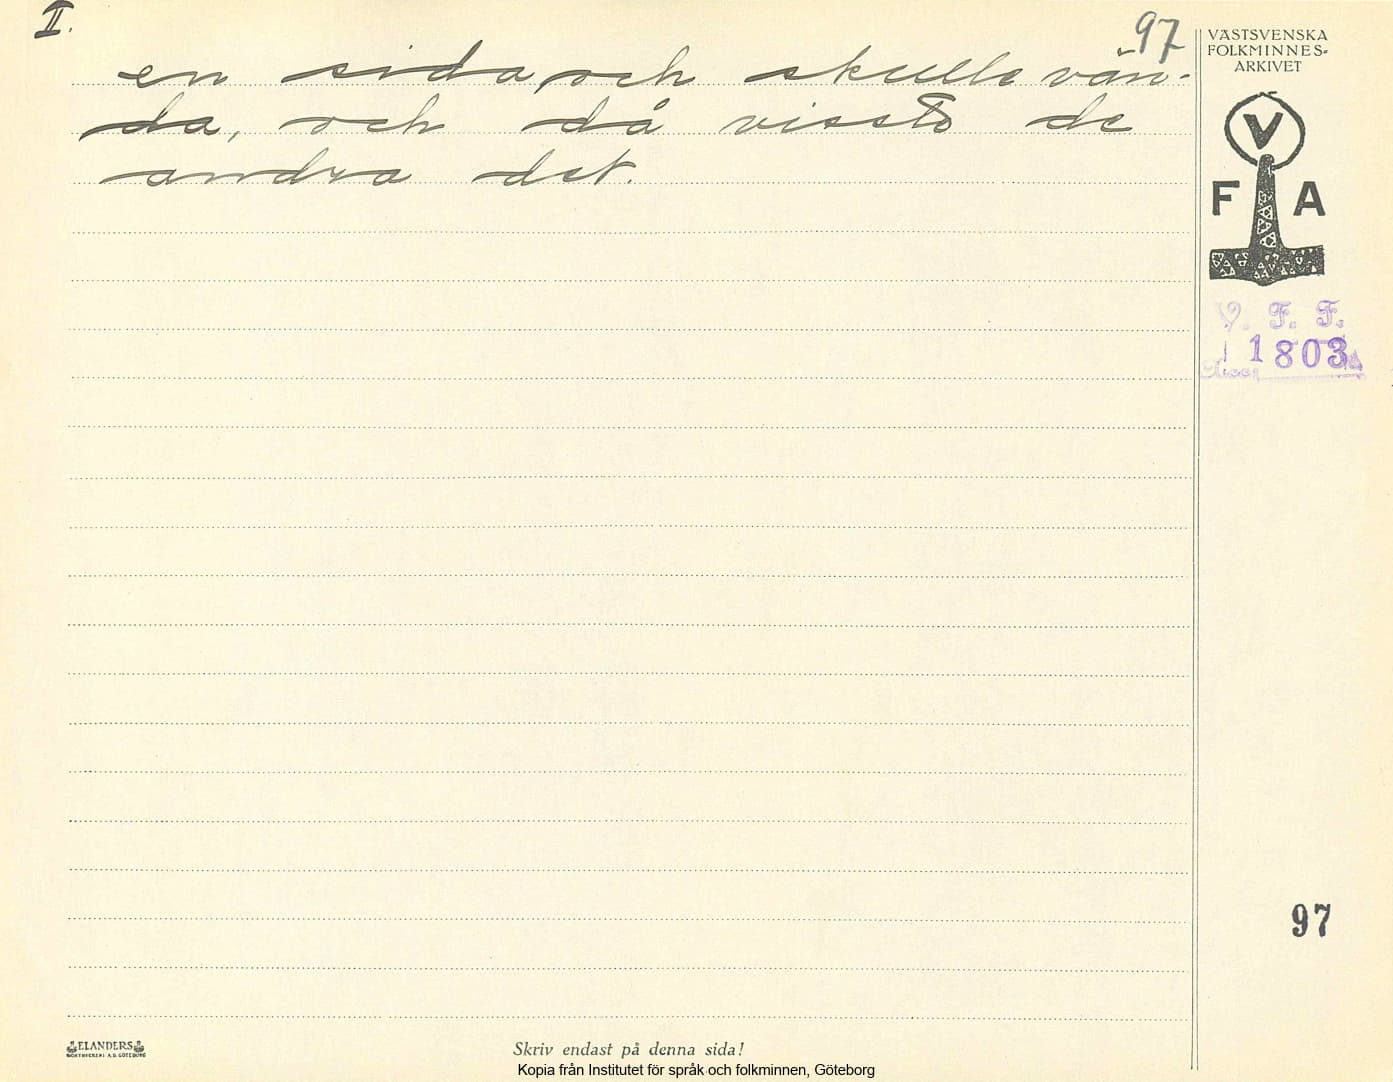 II.
97
en sida, och skulle vän-
da, och då visste de
andra det.
VÄSTSVENSKA
FOLKMINNES-
ARKIVET
V
F A
V. F. F.
1803
97
ELANDERS
BOKTRYCKERI A.B. GÖTEBORG
Skriv endast på denna sida!
Kopia från Institutet för språk och folkminnen, Göteborg